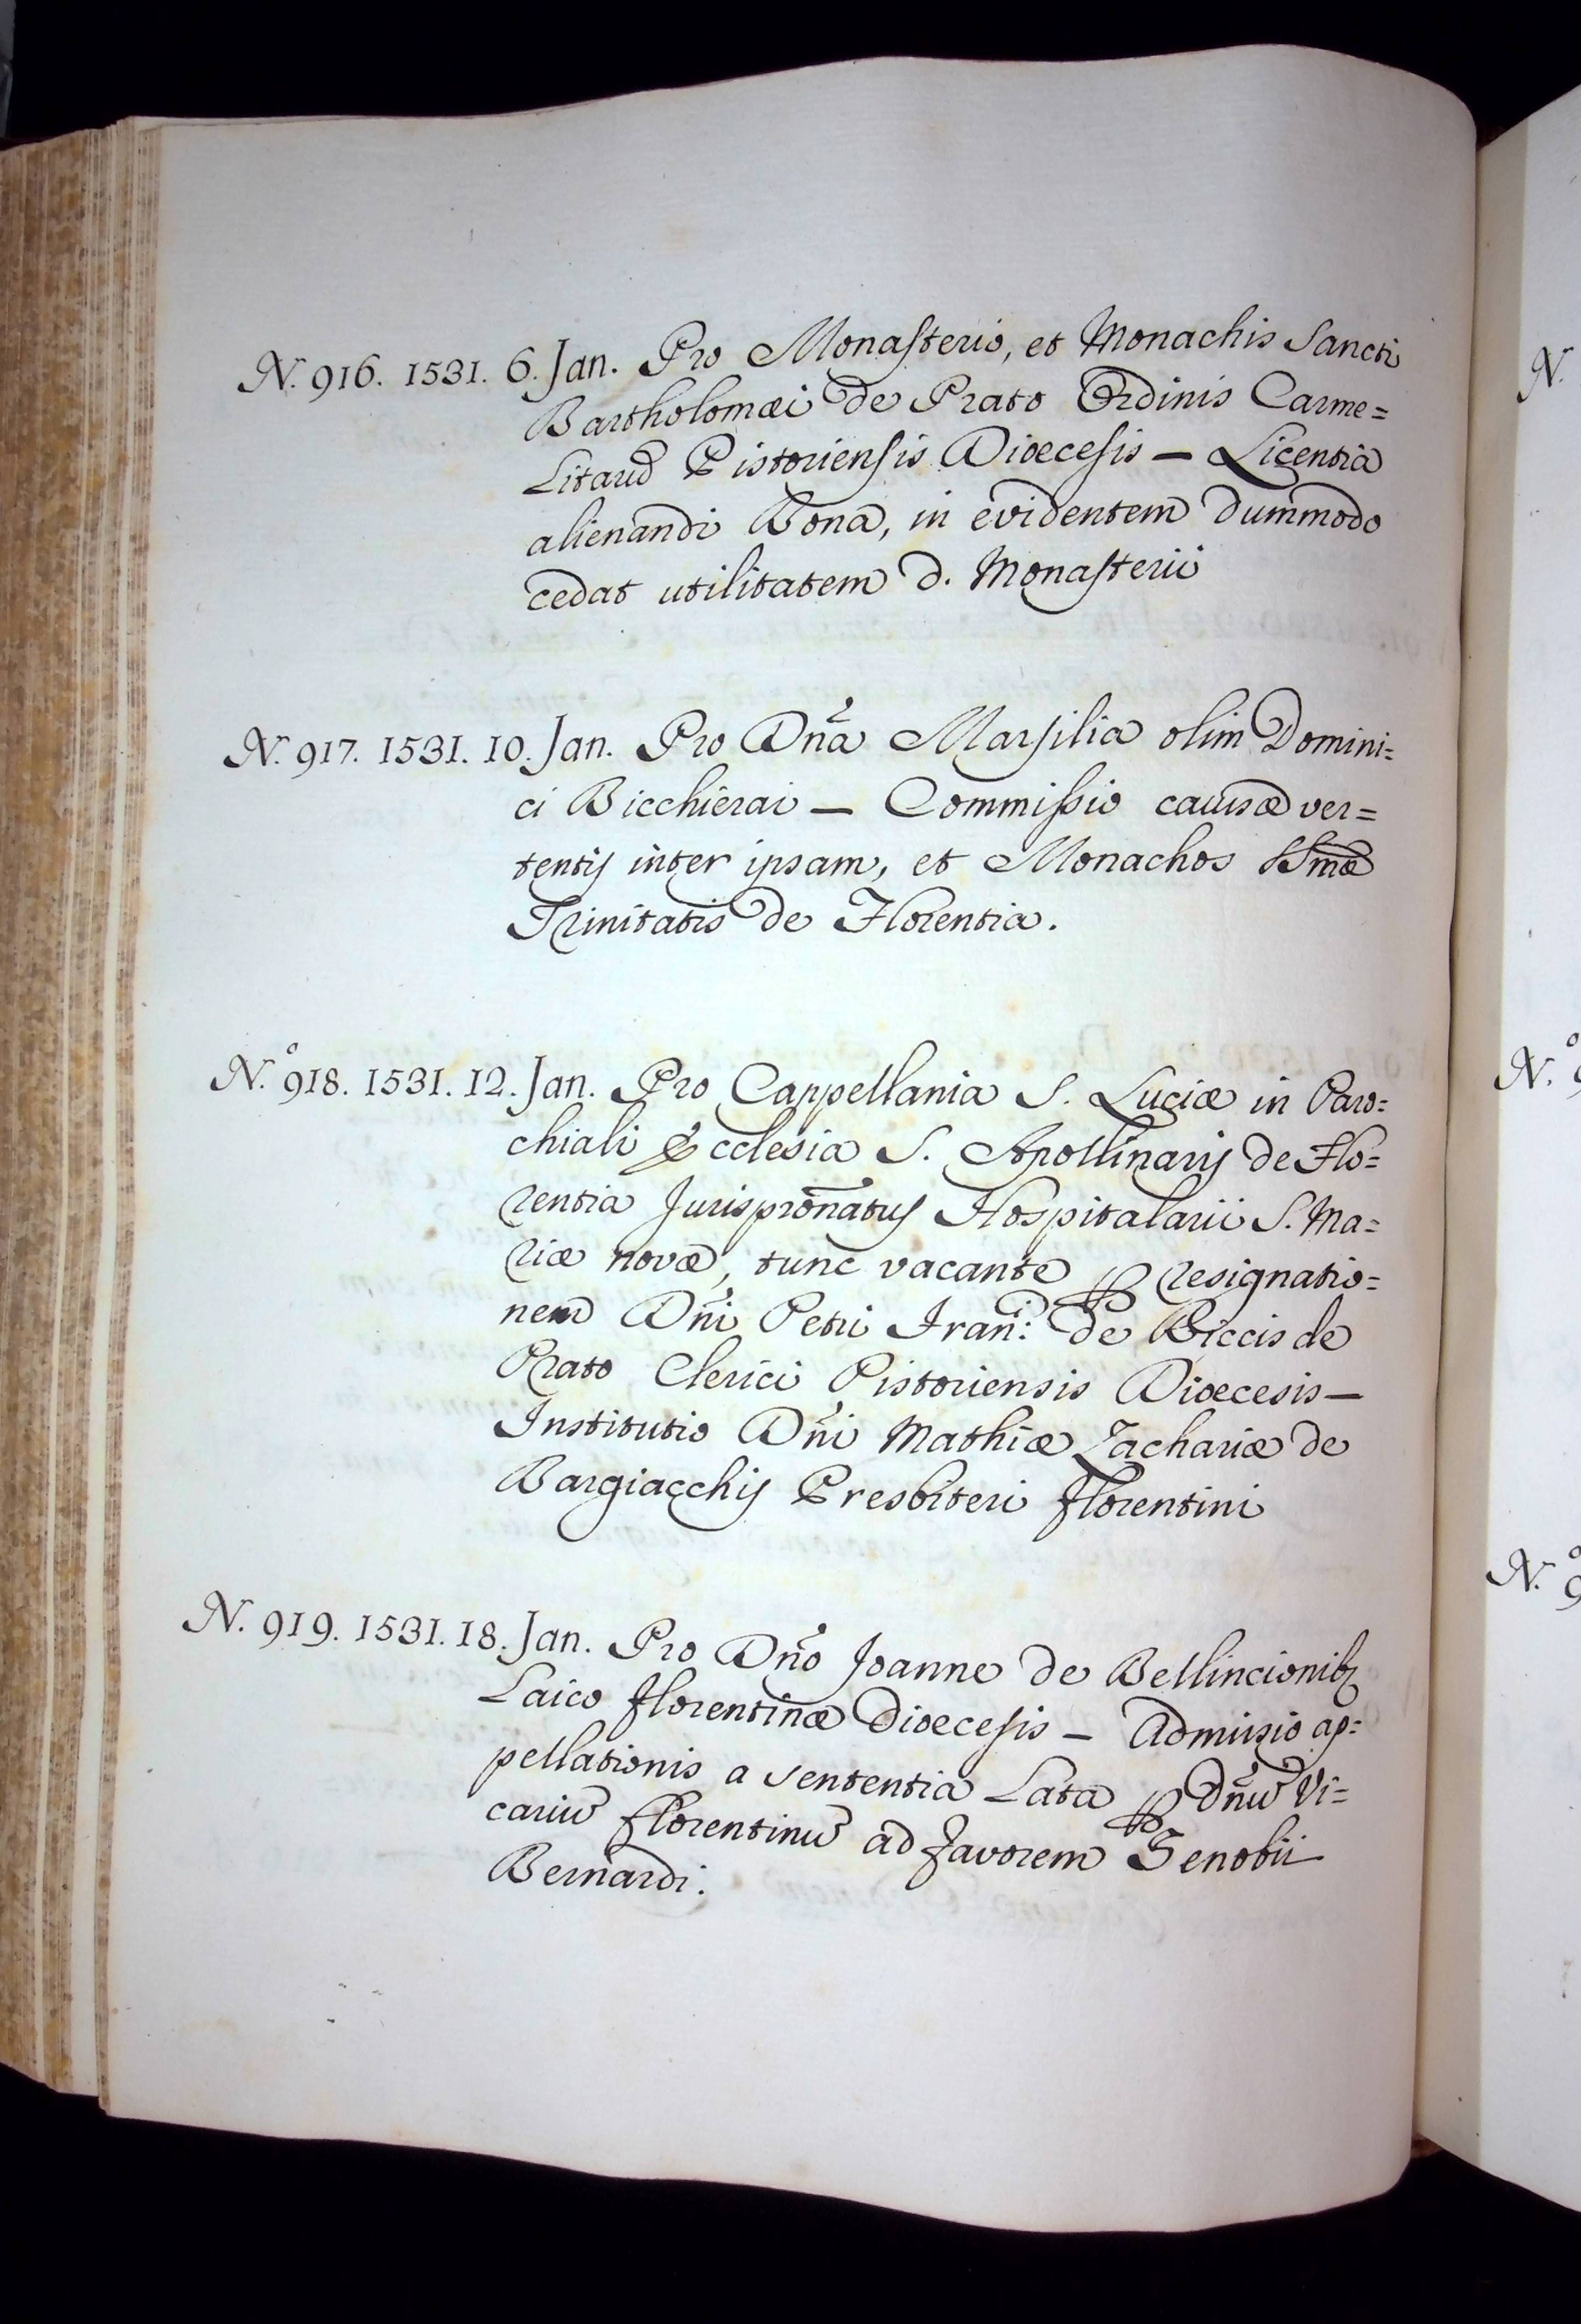 N. 916. 1531. 6. Jan. Pro Monasterio, et Monachis Sancti
Bartholomæi de Prato Ordinis Carme=
Litarũ Pistoriensis Diœcesis — Licentia
alienandi Bona, in evidentem dummodo
cedat utilitatem d. Monasterii
N. 917. 1531. 10. Jan. Pro Dña Marsilia olim Domini=
ci Bicchierai — Commissio causæ ver=
tentis inter ipsam, et Monachos SSmæ
Trinitatis de Florentia.
N.º 918. 1531. 12. Jan. Pro Cappellania S. Luciæ in Paro=
chiali Ecclesia S. Apollinaris de Flo=
rentia Jurisprõnatus Hospitalarii S. Ma=
riæ novæ, tunc vacante ꝑ resignatio=
nem Dñi Petri Frañ: de Riccis de
Prato Clerici Pistoriensis Diœcesis —
Institutio Dñi Mathiæ Zachariæ de
Bargiacchis Presbiteri florentini
N. 919. 1531. 18. Jan. Pro Dño Joanne de Bellincionibꝫ
Laico florentinæ Diœcesis — Admissio ap=
pellationis a sententia Lata ꝑ Dñũ Vi=
cariũ florentinũ ad favorem Zenobii
Bernardi.
N.
N.º
N.º